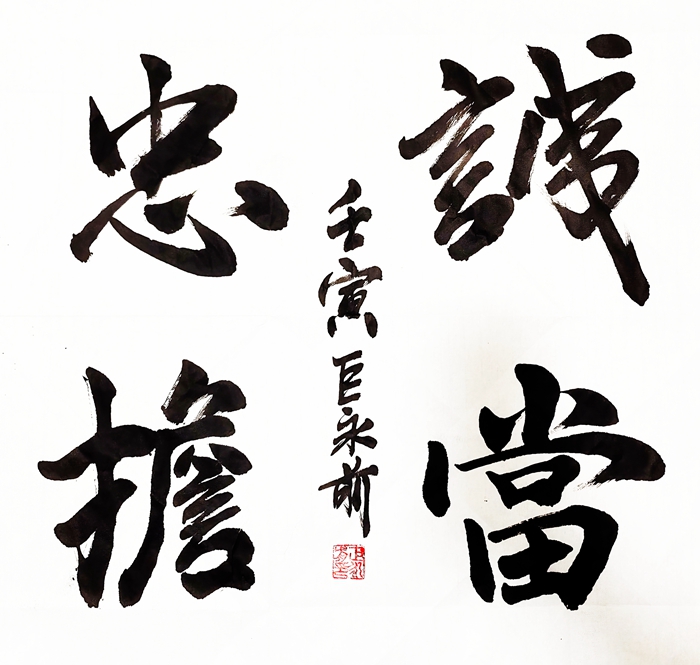 忠誠
擔當
壬寅巨永前